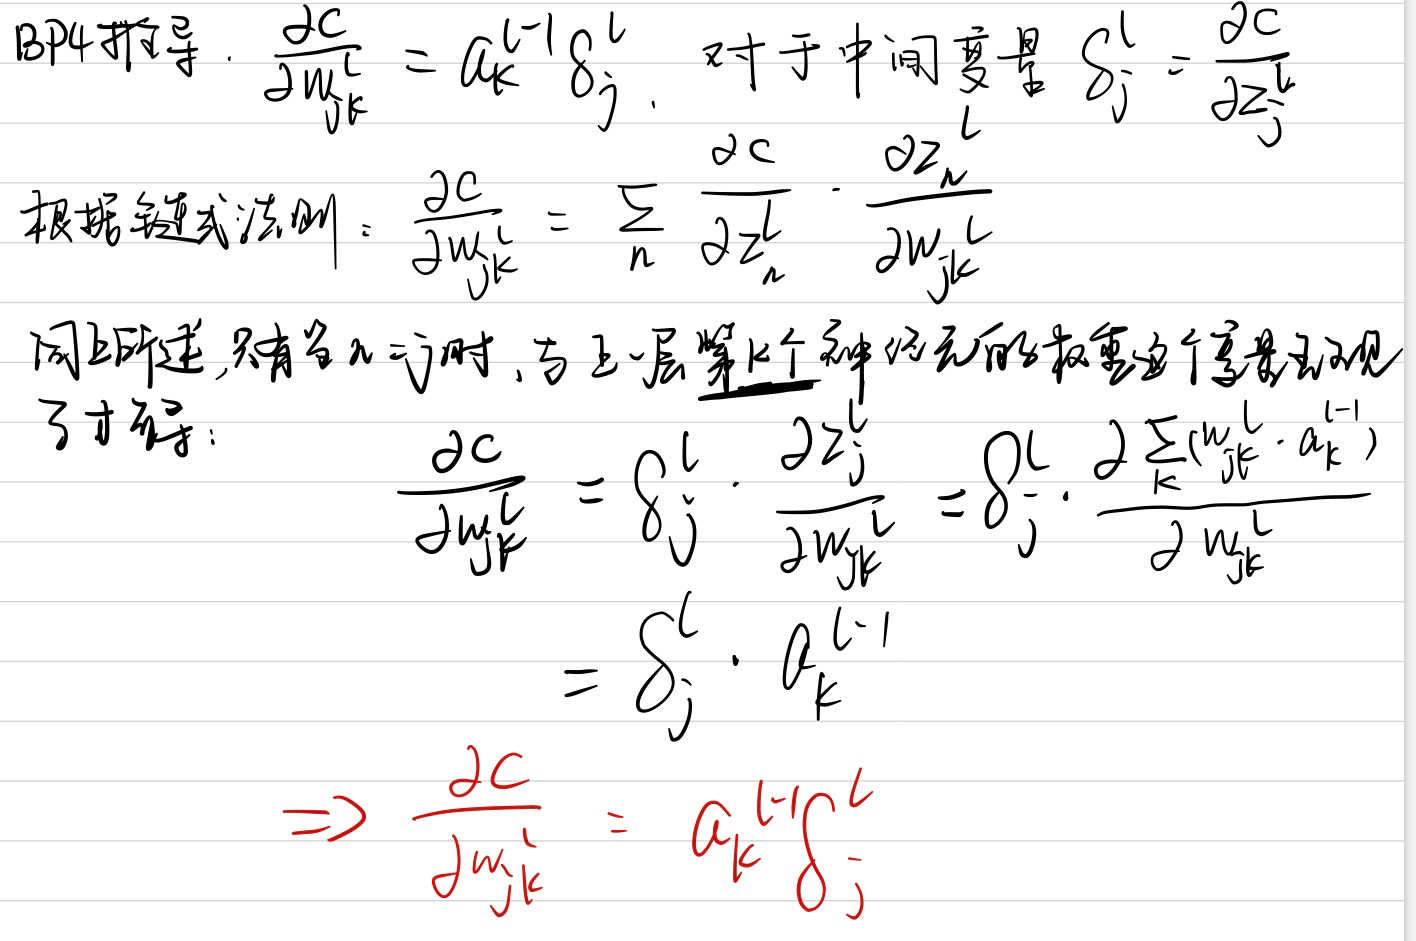 BP4推导. ∂C/∂w_{jk}^l = a_k^{l-1} δ_j^l. 对于中间变量 δ_j^l = ∂C/∂z_j^l
根据链式法则: ∂C/∂w_{jk}^l = Σ_n ∂C/∂z_n^l · ∂z_n^l/∂w_{jk}^l
同上所述,只有当n=j时,与上一层第k个神经元的权重这个变量出现
了才有导:
∂C/∂w_{jk}^l = δ_j^l · ∂z_j^l/∂w_{jk}^l = δ_j^l · ∂Σ_k(w_{jk}^l · a_k^{l-1})/∂w_{jk}^l
= δ_j^l · a_k^{l-1}
⇒ ∂C/∂w_{jk}^l = a_k^{l-1} δ_j^l